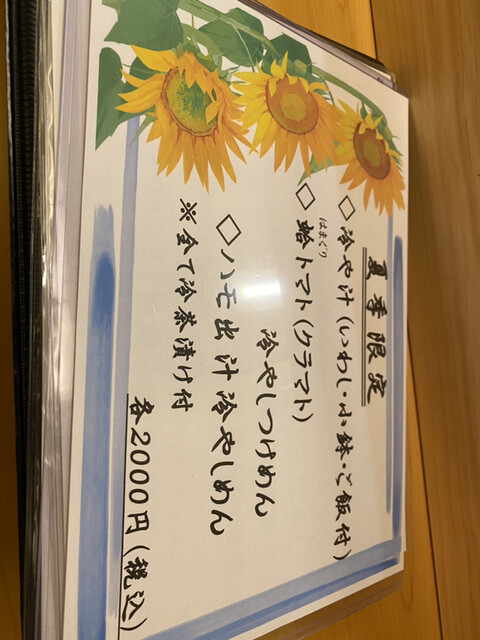 夏季限定
◇冷や汁(いわし・小鉢・ご飯付)
はまぐり
◇蛤トマト(クラマト)
冷やしつけめん
◇ハモ出汁冷やしめん
※全て冷茶漬け付
各2000円(税込)